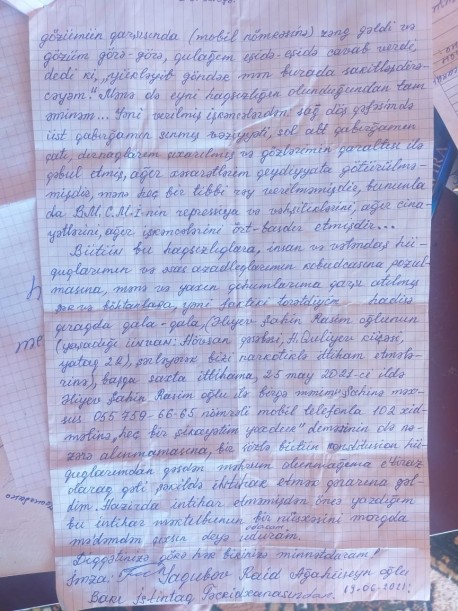 gözümün qarşısında (mobil nömrəsinə) zəng gəldi və
gözüm görə-görə, qulağım eşidə-eşidə cavab verdi,
dedi ki, göndər mən burada sakitləşdirə-
cəyəm." Mənə də eyni haqsızlığın olunduğundan tam
əminəm... Yəni verilmiş işgəncələrdən: sağ döş qəfəsimdə
üst qabırğamın sınmış vəziyyəti, sol alt qabırğamın
çatı, dırnaqlarım çıxarılmış və gözlərimin qaraltısı ilə
qəbul etmiş, ağır xəsarətlərim qeydiyyata götürülmə-
mişdir, mənə heç bir tibbi rəy verilməmişdir, bununla
da B.M.C.M.İ-nin repressiya və vəhşiliklərini, ağır cina-
yətlərini, ağır işgəncələrini ört-basdır etmişdir...
Bütün bu haqsızlıqlara, insan və vətəndaş hü-
quqlarımın və əsas azadlıqlarımın kobudcasına pozul-
masına, mənə və yaxın qohumlarıma qarşı atılmış
şər və böhtanlara, yəni faktiki törətdiyim hadisə
qıraqda qala-qala, (Əliyev Şahin Rasim oğlunun
(yaşadığı ünvan: Hövsan qəsəbəsi, H.Quliyev küçəsi,
yataq 2A), bizi narkotiklə ittiham etmələ-
rinə), başqa saxta ittihama, 25 may 2021-ci ildə
Əliyev Şahin Rasim oğlu ilə Şahinə məx-
sus 055 759-66-65 nömrəli mobil telefonla 102 xid-
mətinə, heç bir şikayətim yoxdur" deməsinin də nə-
zərə alınmamasına, bir sözlə bütün konstitusion hü-
quqlarımdan qəsdən məhrum olunmağıma etiraz
olaraq qəti şəkildə intihar etmək qərarına gəl-
dim. Hazırda intihar etməmişdən öncə yazdığım
bu intihar məktubunun bir nüsxəsini morqda
mədəmdən çıxsın deyə uduram.
Diqqətinizə görə hər birinizə minnətdaram!
İmza: Yaqubov Raid Ağahüseyn oğlu
Bakı İstintaq Təcridxanasından. 19.06.2021.